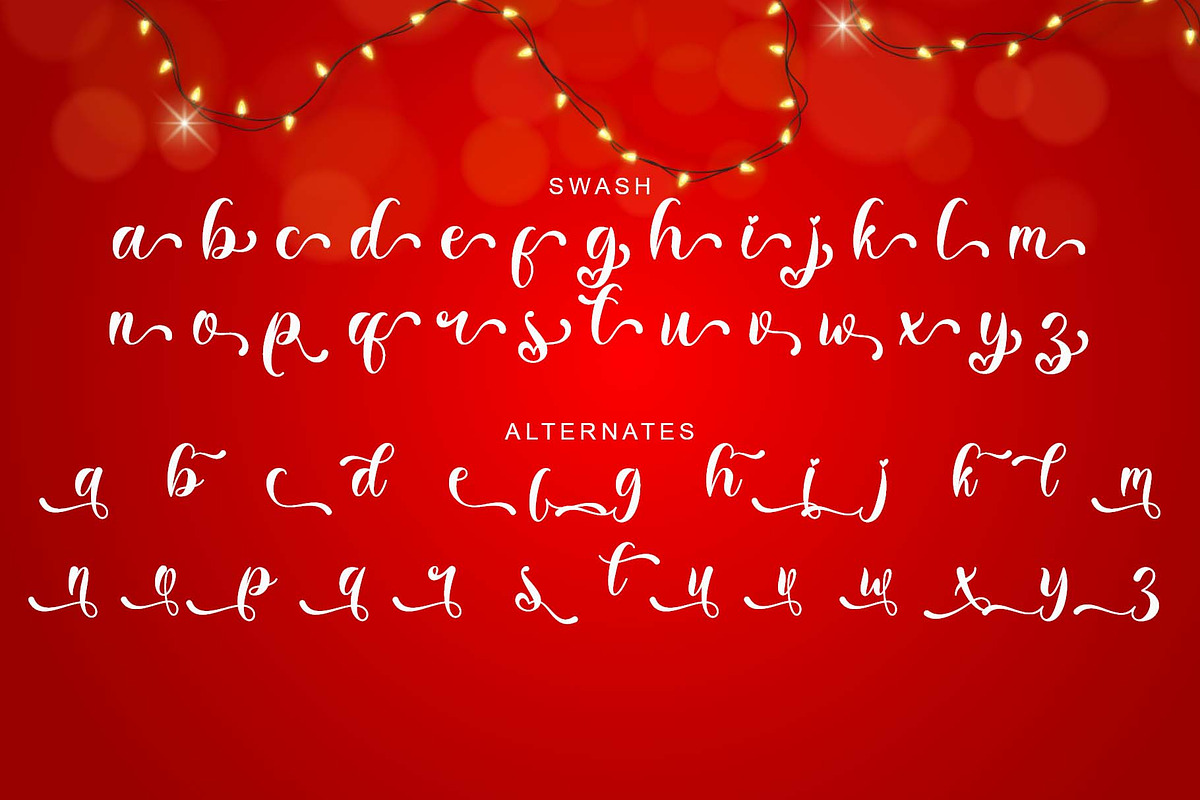 SWASH
a b c d e f g h i j k l m
n o p q r s t u v w x y z
ALTERNATES
a b c d e f g h i j k l m
n o p q r s t u v w x y z